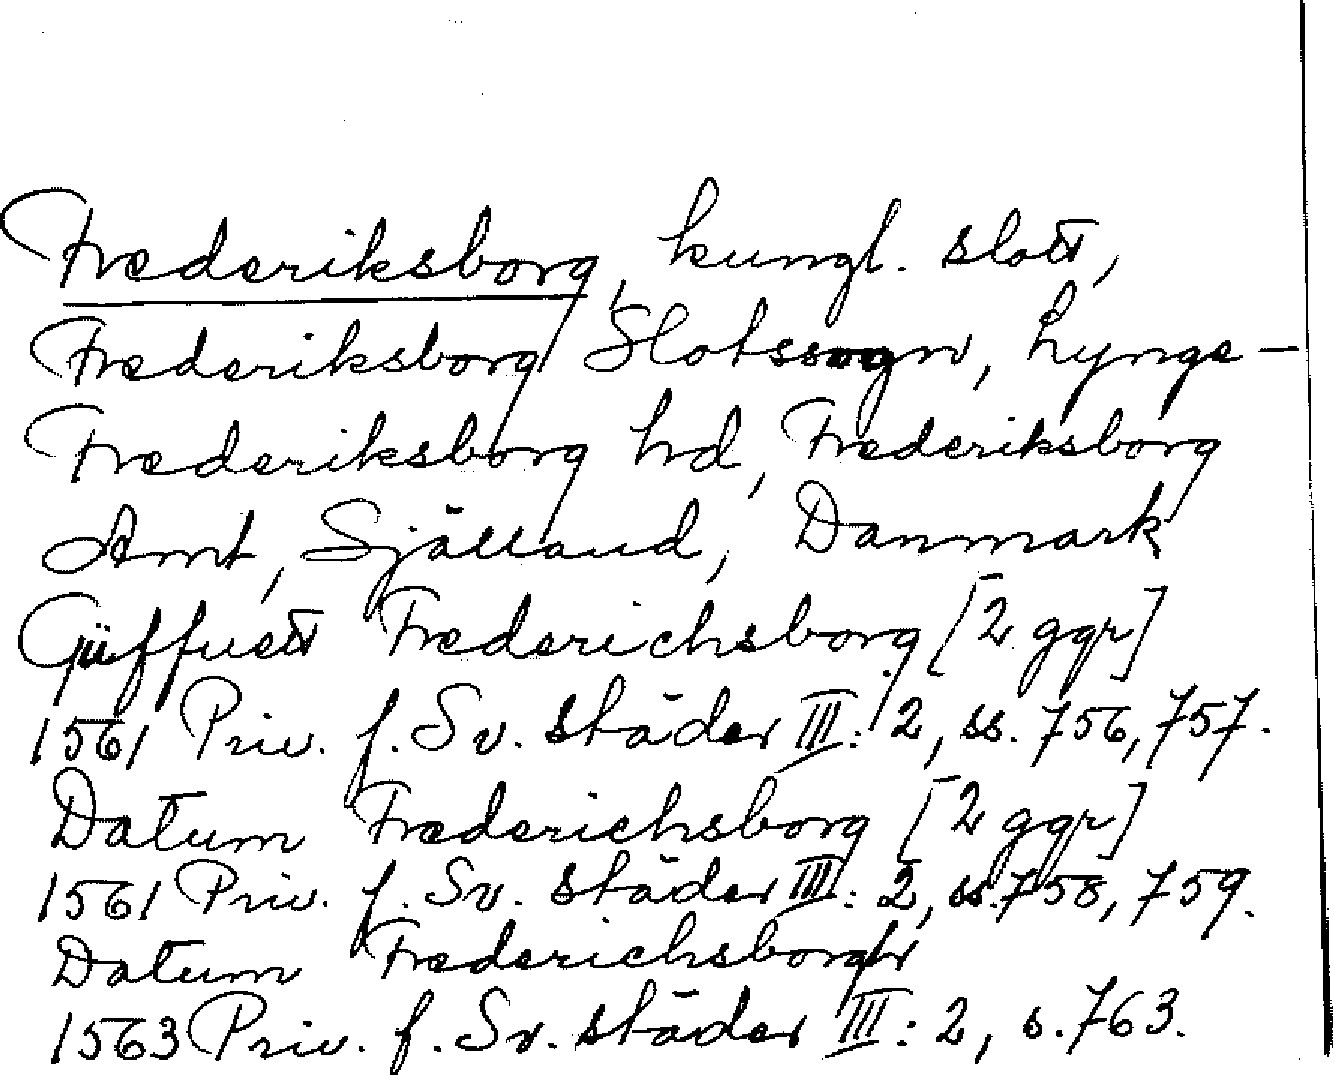 Frederiksborg, kungl. slott,
Frederiksborg Slotssogn, Lynge-
Frederiksborg hd, Frederiksborg
Amt, Själland, Danmark
Güffuett Frederichsborg [2 ggr]
1561 Priv. f. Sv. städer III: 2, ss. 756, 757.
Datum Frederichsborg [2 ggr]
1561 Priv. f. Sv. städer III: 2, ss. 758, 759.
Datum Frederichsborgh
1563 Priv. f. Sv. städer III: 2, s. 763.